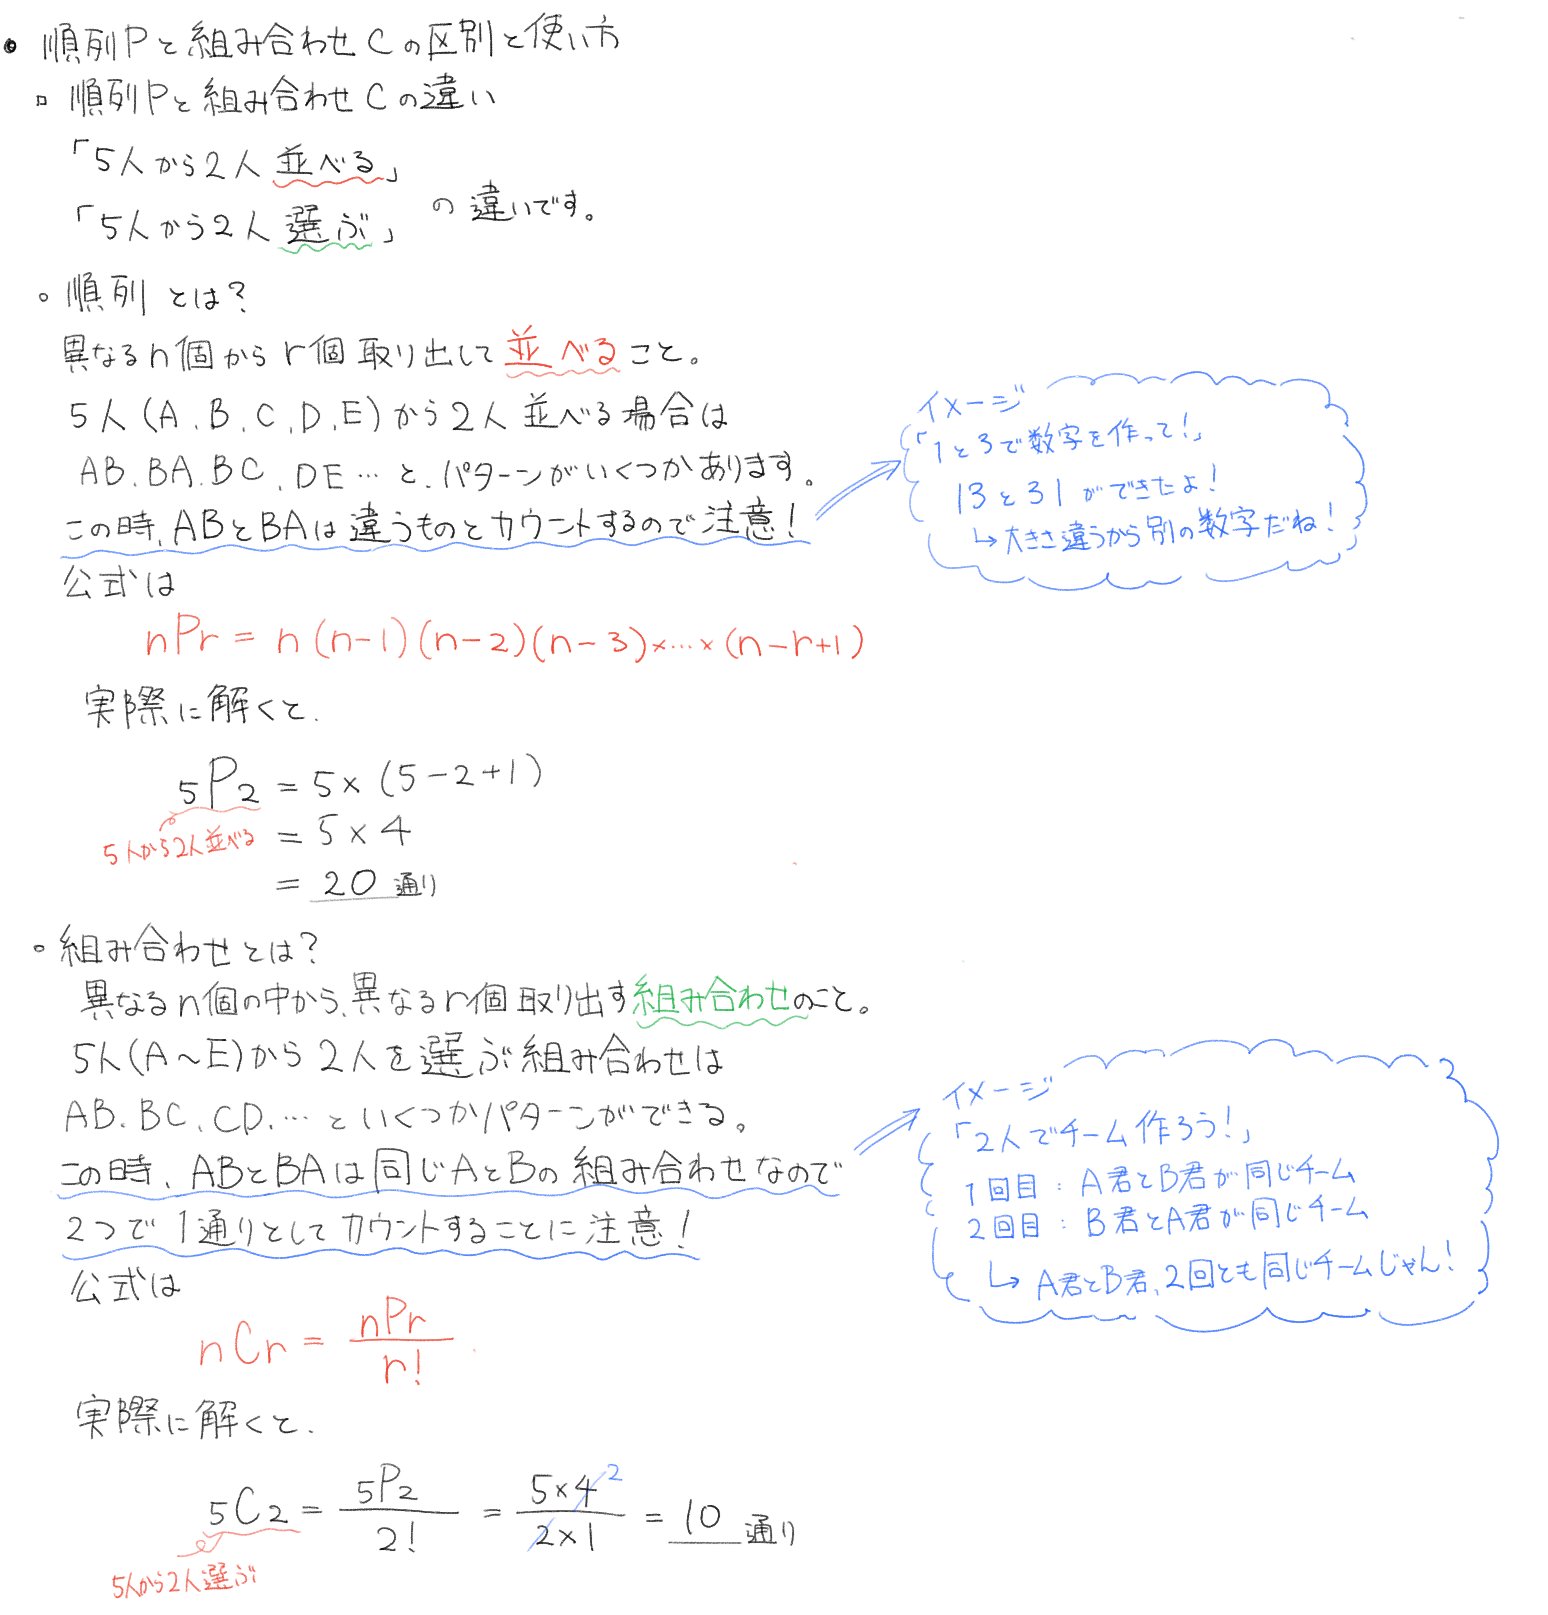 ● 順列Pと組み合わせCの区別と使い方
□ 順列Pと組み合わせCの違い
「5人から2人並べる」
「5人から2人選ぶ」
の違いです。
○ 順列とは?
異なるn個からr個取り出して並べること。
5人(A.B.C.D.E)から2人並べる場合は
AB.BA.BC.DE…と、パターンがいくつかあります。
この時、ABとBAは違うものとカウントするので注意!
イメージ
「1と3で数字を作って!」
13と31ができたよ!
↳大きさ違うから別の数字だね!
公式は
nPr = n(n-1)(n-2)(n-3)×…×(n-r+1)
実際に解くと、
5P2 = 5×(5-2+1)
5人から2人並べる
= 5×4
= 20通り
○ 組み合わせとは?
異なるn個の中から、異なるr個取り出す組み合わせのこと。
5人(A~E)から2人を選ぶ組み合わせは
AB.BC.CD.…といくつかパターンができる。
この時、ABとBAは同じAとBの組み合わせなので
2つで1通りとしてカウントすることに注意!
イメージ
「2人でチーム作ろう!」
1回目:A君とB君が同じチーム
2回目:B君とA君が同じチーム
↳A君とB君、2回とも同じチームじゃん!
公式は
nCr = nPr/r!
実際に解くと、
5C2 = 5P2/2! = 5×4/2×1 = 10通り
2
5人から2人選ぶ